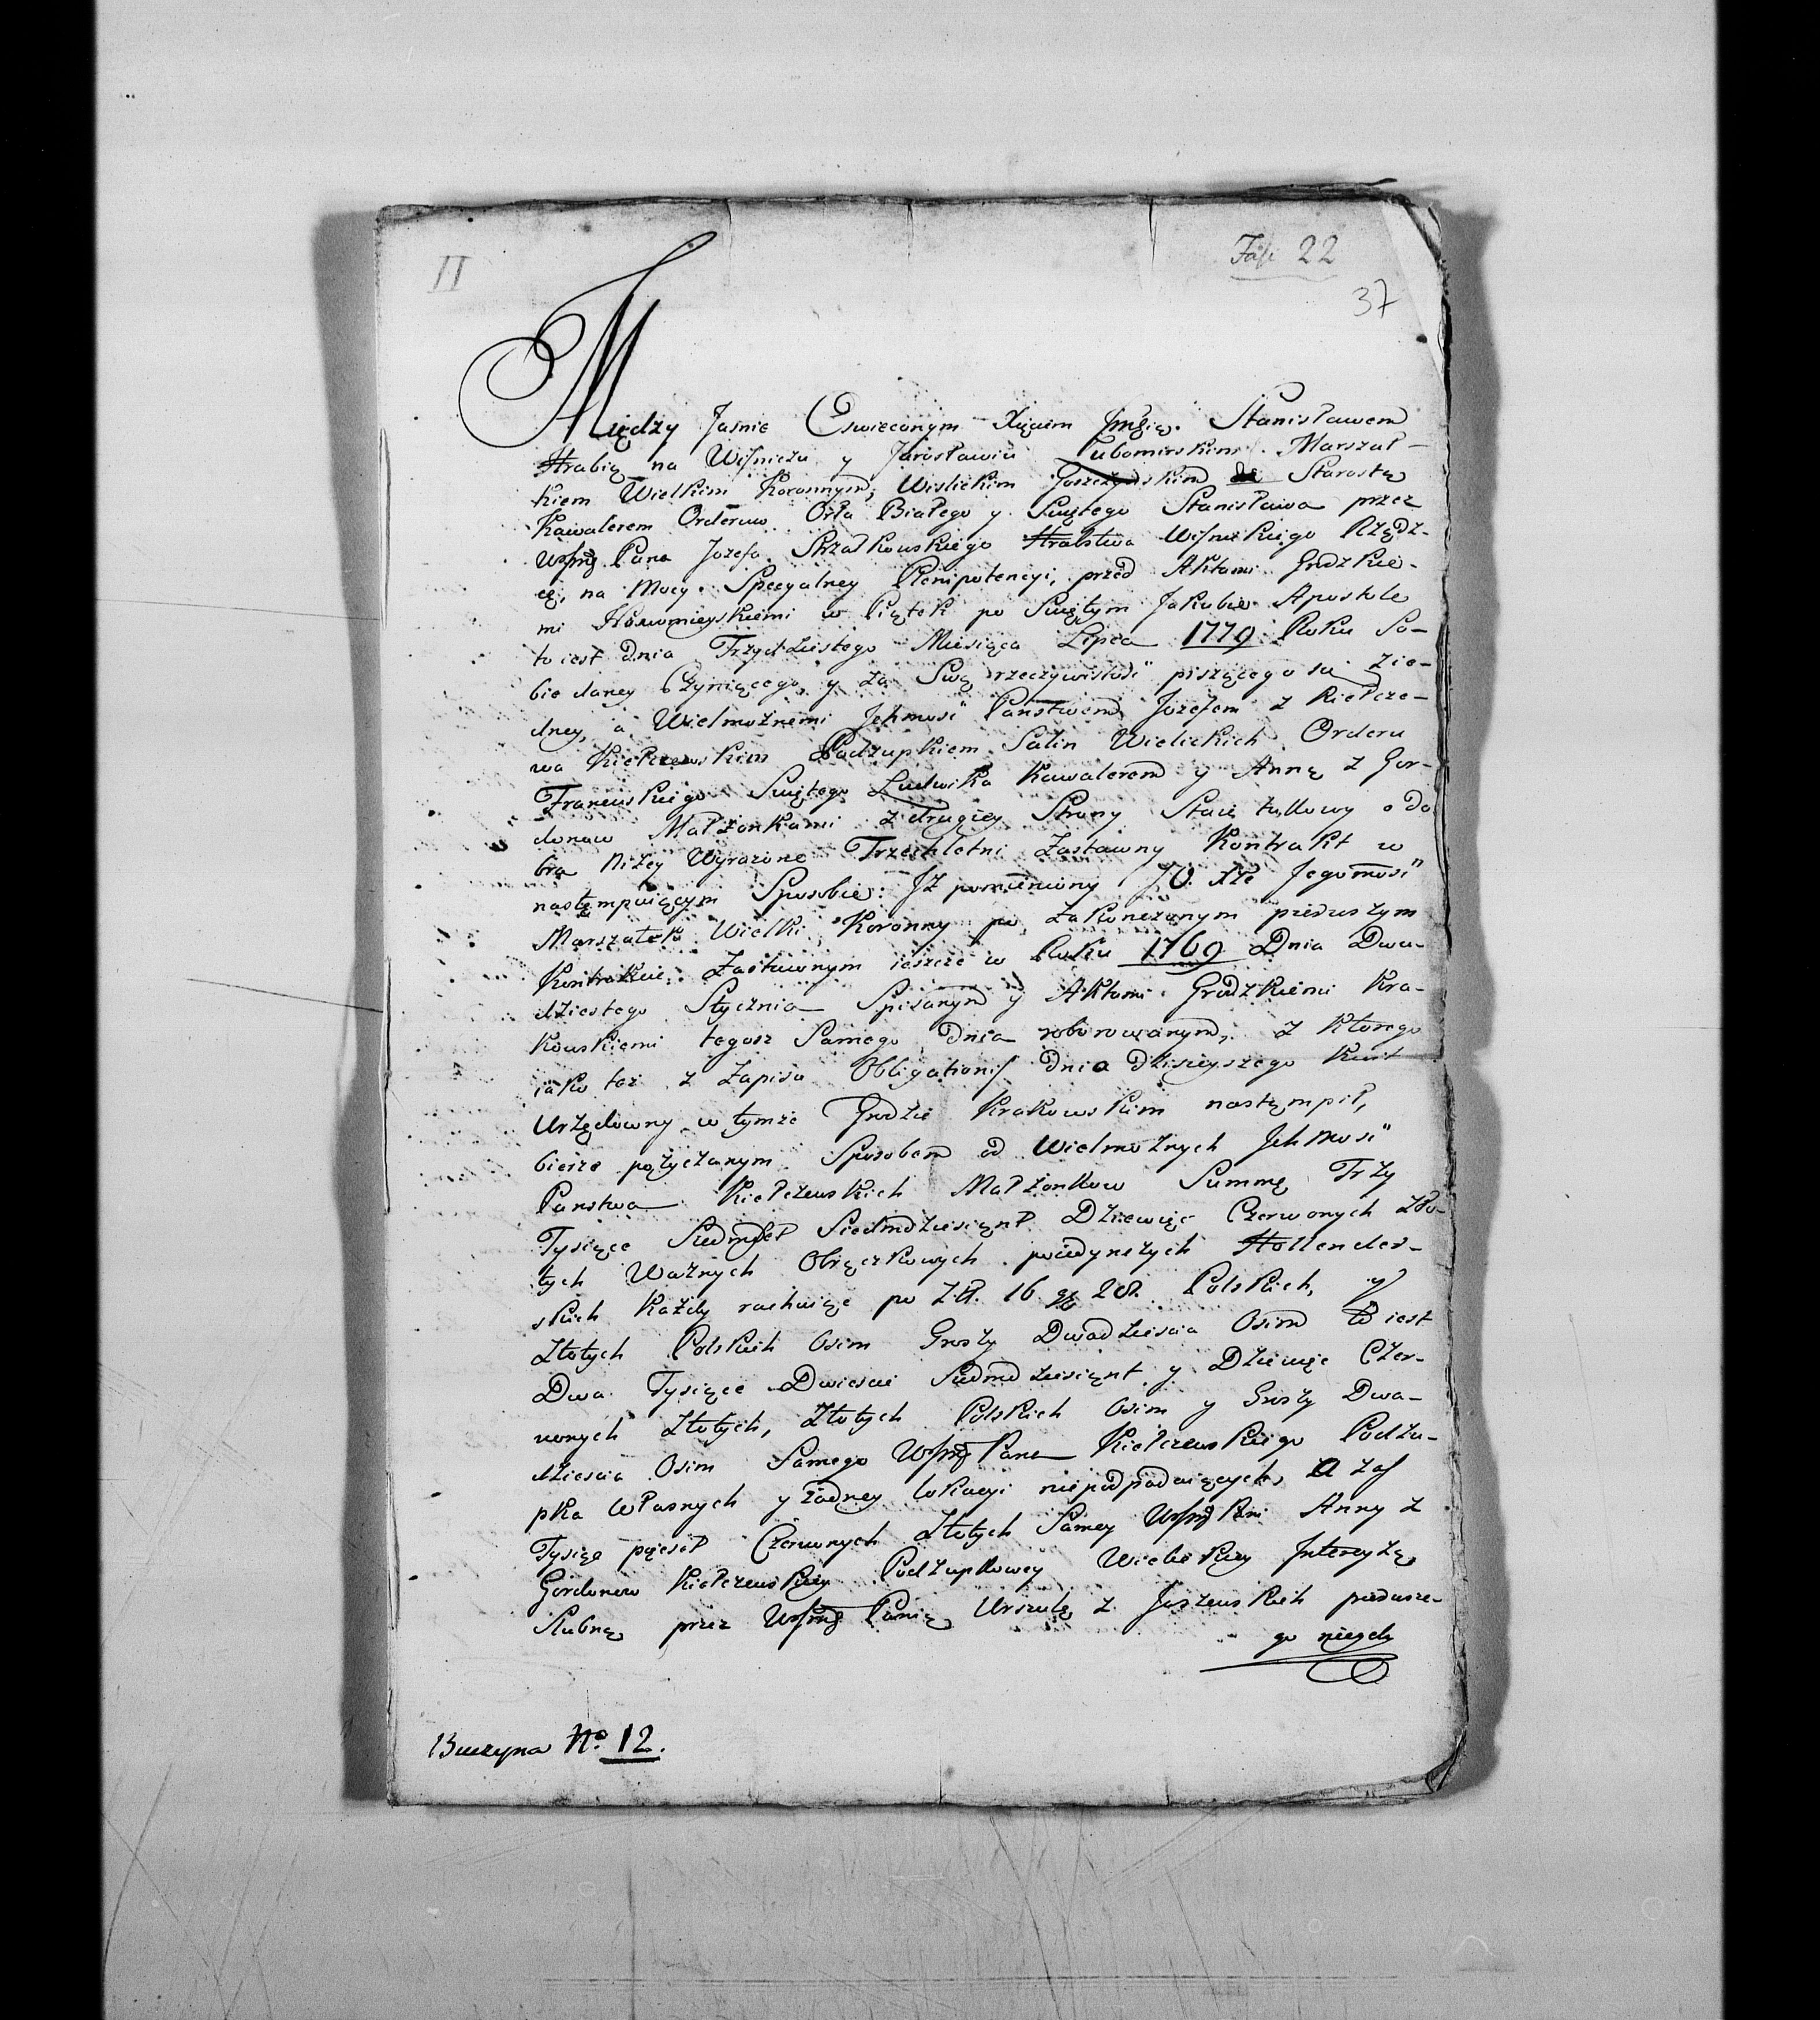 II
Fasc 22
37
Między Jasnie Oswieconym Xięciem Jmcią Stanisławem
Hrabią na Wisniczu y Jarosławiu Lubomirskim Marszał-
kiem Wielkim Koronnym, Wislickim Starostą
Kawalerem Orderow Orła Białego y Swiętego Stanisława przez
Pana Jozefa Strzałkowskiego Hrabstwa Wisnickiego Rządz-
cę, na Mocy Specyalney Plenipotencyi, przed Aktami Grodzkie-
mi w Piątek po Swiętym Jakubie Apostole
to iest dnia Trzydziestego Miesiąca Lipca 1779 Roku So-
bie daney Czyniącego y za Swą rzeczywistość piszącego się z ie-
dney, a Wielmoznemi Jchmość Panstwem Jozefem z Kiełcze-
wa Kiełczewskim Podzupkiem Salin Wielickich Orderu
Francuskiego Swiętego Ludwika Kawalerem y Anną z Gor-
donow Małzonkami z drugiey Strony Stanął takowy o Do
bra nizey Wyrazone Trzechletni Zastawny Kontrakt w
nastęmpuiącym Sposobie: Jz pomieniony JO Xże Jegomość
Marszałek Wielki Koronny po Zakonczonym pierwszym
Kontrakcie Zastawnym ieszcze w Roku 1769 Dnia Dwu-
dziestego Stycznia Spisanym y Aktami Grodzkiemi Kra-
kowskiemi tegosz Samego Dnia roborowanym, z ktorego
iako tez z Zapisu Obligationis Dnia Dzisieyszego Kwit
Urzędowny w tymze Grodzie Krakowskim nastęmpił,
bierze pożyczanym Sposobem od Wielmożnych Jchmość
Panstwa Kiełczewskich Małzonkow Summę Trzy
Tysiące Siedmset Siedmdziesiąt Dziewięć Czerwonych Zło-
tych Ważnych Obrączkowych poiedynczych Hollender-
skich Każdy rachuiąc po Zł. 16 gr 28. Polskich, y
Złotych Polskich Osim Groszy Dwadziescia Osim to iest
Dwa Tysiące Dwiescie Siedmdziesiąnt y Dziewięć Czer-
wonych Złotych, Złotych Polskich Osim y Groszy Dwa-
dziescia Osim Samego Pana Kiełczewskiego Podżu-
pka Własnych y żadney lokacyi niepodpadaiących, a zaś
Tysiąc pięćset Czerwonych Złotych Samey Pani Anny z
Gordonow Kiełczewskiey Podżupkowey Wielickiey Jntercyzą
Slubną przez Panią Urszulę z Jaszewskich pierwsze-
go niegdy
Buczyna No. 12.